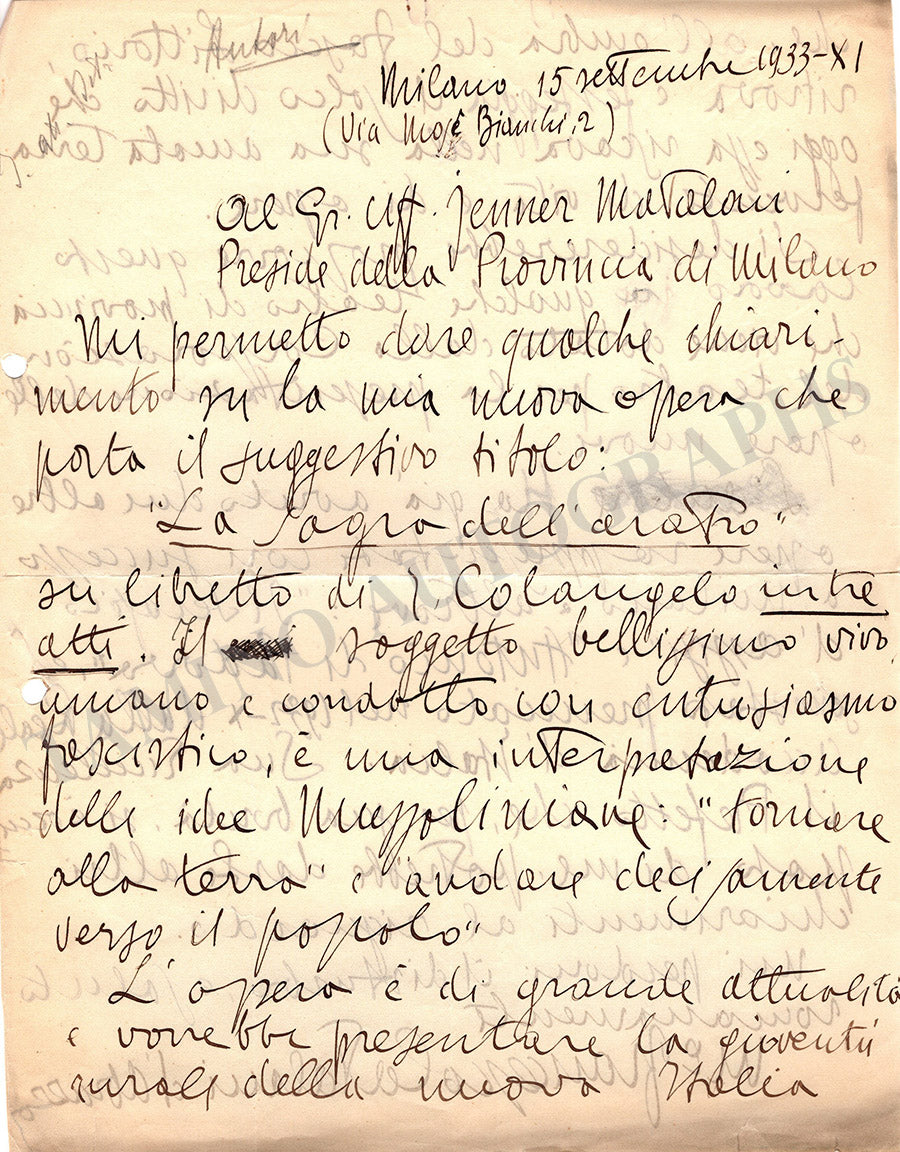 Autori
Milano 15 settembre 1933-XI
(Via Mosè Bianchi, 2)
Al Gr. Uff. Jenner Matalani
Preside della Provincia di Milano
Mi permetto dare qualche chiari-
mento su la mia nuova opera che
porta il suggestivo titolo:
"La Sagra dell'aratro"
su libretto di Colangelo in tre
atti. Il soggetto bellissimo vivo,
umano e condotto con entusiasmo
fascistico, è una interpretazione
delle idee Mussoliniane: "tornare
alla terra" e "andare decisamente
verso il popolo"
L'opera è di grande attualità
e vorrebbe presentare la gioventù
rurale della nuova Italia
TAMINO AUTOGRAPHS